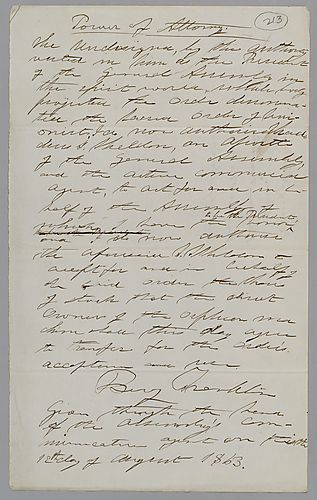 Power of Attorney. 213
The undersigned, by the authority
vested in him as the President
of the General Assembly in
the spirit world, which body
projected the order denomina-
ted the Sacred Order of Uni-
onists, do now authorize
L. Sheldon, an Agent
of the General Assembly
and the active commercial
agent, to act for and in be-
half of the Assembly of
which I have the honor to be the President
and I do now authorize
the aforesaid L. Sheldon to
accept for and in behalf of
the said order the share
of stock that the chief
owner of the
shall this day agree
to transfer for the order's
acceptance and use
Benj. Franklin
Given through the hand
of the Assembly's com-
municative agent on this the
12th day of August 1853.